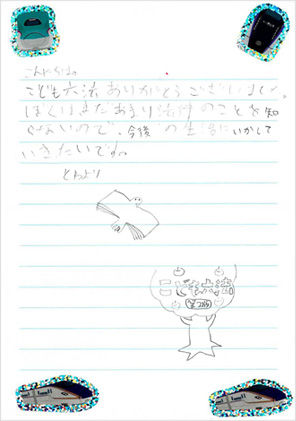 こんにちは。
こども六法ありがとうございました。
ぼくはまだあまり法律のことを知
らないので、今後の生活にいかして
いきたいです。
とわより
こども六法